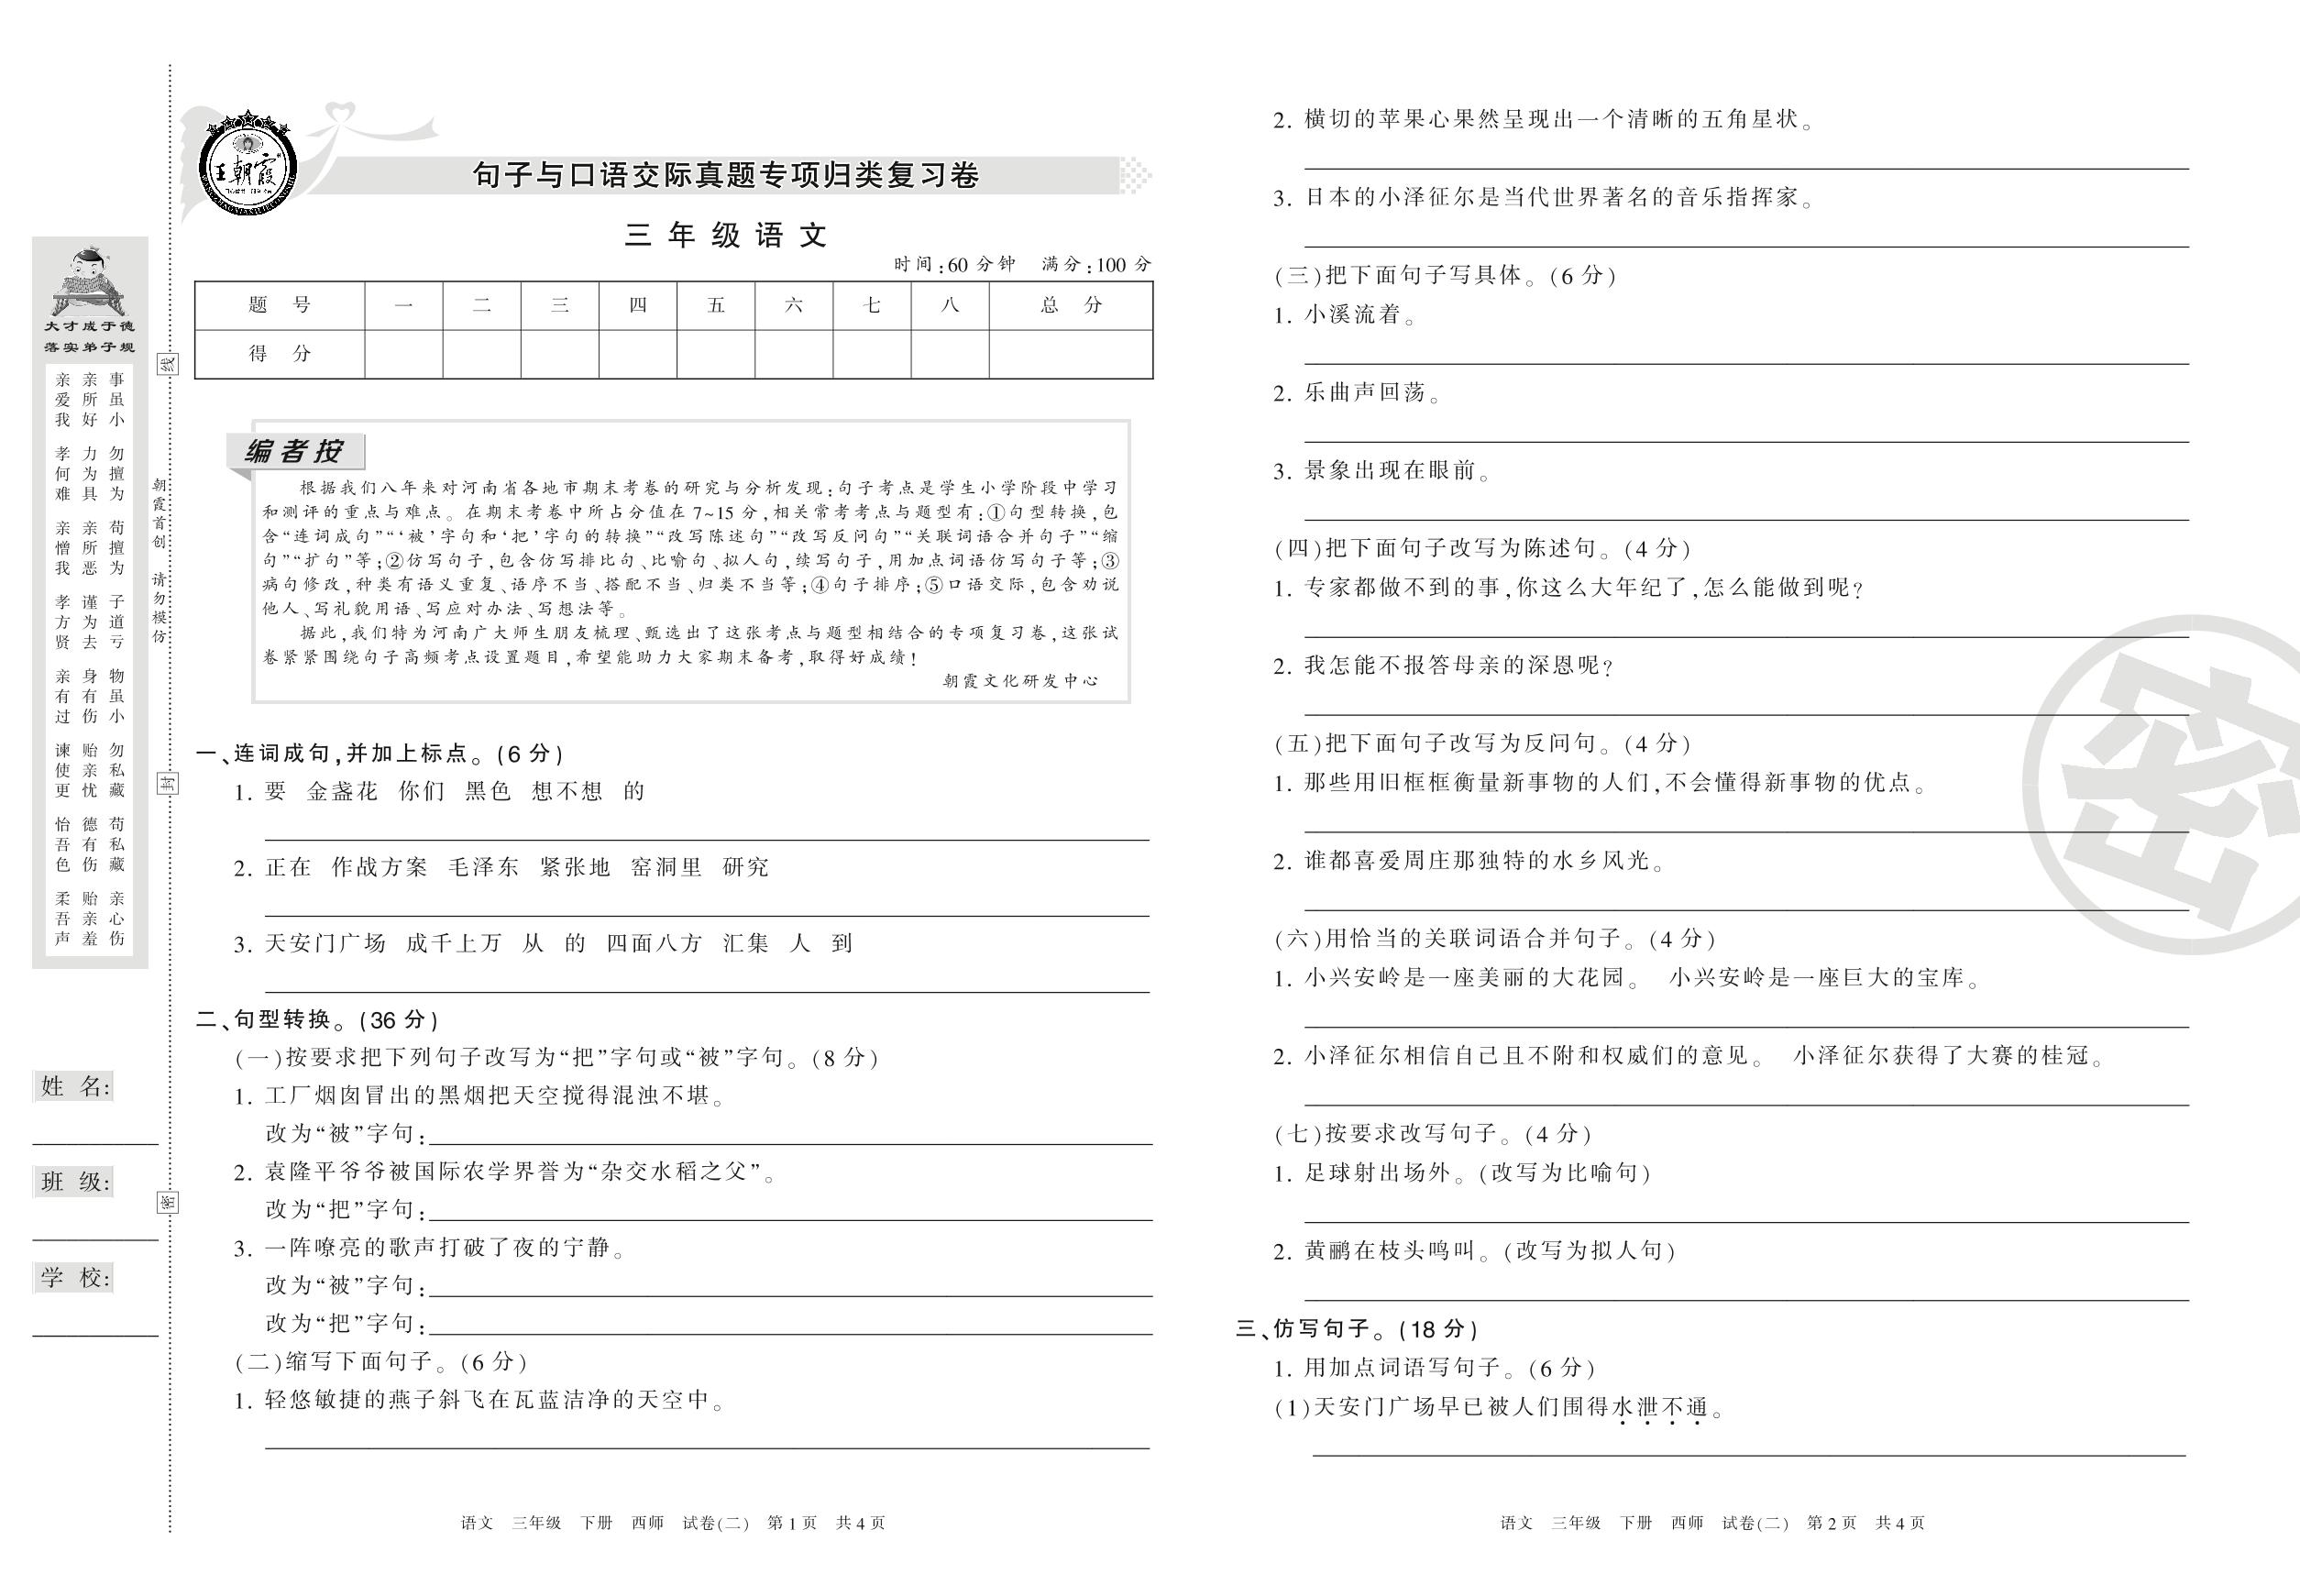 王朝霞
句子与口语交际真题专项归类复习卷
三年级语文
时间:60 分钟 满分:100 分
题 号 一 二 三 四 五 六 七 八 总 分
得 分
编者按
根据我们八年来对河南省各地市期末考卷的研究与分析发现:句子考点是学生小学阶段中学习
和测评的重点与难点。在期末考卷中所占分值在 7~15 分,相关常考考点与题型有:①句型转换,包
含“连词成句”“‘被’字句和‘把’字句的转换”“改写陈述句”“改写反问句”“关联词语合并句子”“缩
句”“扩句”等;②仿写句子,包含仿写排比句、比喻句、拟人句,续写句子,用加点词语仿写句子等;③
病句修改,种类有语义重复、语序不当、搭配不当、归类不当等;④句子排序;⑤口语交际,包含劝说
他人、写礼貌用语、写应对办法、写想法等。
据此,我们特为河南广大师生朋友梳理、甄选出了这张考点与题型相结合的专项复习卷,这张试
卷紧紧围绕句子高频考点设置题目,希望能助力大家期末备考,取得好成绩!
朝霞文化研发中心
一、连词成句,并加上标点。(6 分)
1. 要 金盏花 你们 黑色 想不想 的
2. 正在 作战方案 毛泽东 紧张地 窑洞里 研究
3. 天安门广场 成千上万 从 的 四面八方 汇集 人 到
二、句型转换。(36 分)
(一)按要求把下列句子改写为“把”字句或“被”字句。(8 分)
1. 工厂烟囱冒出的黑烟把天空搅得混浊不堪。
改为“被”字句:
2. 袁隆平爷爷被国际农学界誉为“杂交水稻之父”。
改为“把”字句:
3. 一阵嘹亮的歌声打破了夜的宁静。
改为“被”字句:
改为“把”字句:
(二)缩写下面句子。(6 分)
1. 轻悠敏捷的燕子斜飞在瓦蓝洁净的天空中。
语文 三年级 下册 西师 试卷(二) 第 1 页 共 4 页
2. 横切的苹果心果然呈现出一个清晰的五角星状。
3. 日本的小泽征尔是当代世界著名的音乐指挥家。
(三)把下面句子写具体。(6 分)
1. 小溪流着。
2. 乐曲声回荡。
3. 景象出现在眼前。
(四)把下面句子改写为陈述句。(4 分)
1. 专家都做不到的事,你这么大年纪了,怎么能做到呢?
2. 我怎能不报答母亲的深恩呢?
(五)把下面句子改写为反问句。(4 分)
1. 那些用旧框框衡量新事物的人们,不会懂得新事物的优点。
2. 谁都喜爱周庄那独特的水乡风光。
(六)用恰当的关联词语合并句子。(4 分)
1. 小兴安岭是一座美丽的大花园。 小兴安岭是一座巨大的宝库。
2. 小泽征尔相信自己且不附和权威们的意见。 小泽征尔获得了大赛的桂冠。
(七)按要求改写句子。(4 分)
1. 足球射出场外。(改写为比喻句)
2. 黄鹂在枝头鸣叫。(改写为拟人句)
三、仿写句子。(18 分)
1. 用加点词语写句子。(6 分)
(1)天安门广场早已被人们围得水泄不通。
语文 三年级 下册 西师 试卷(二) 第 2 页 共 4 页
密
大才成于德
落实弟子规
事虽小 勿擅为 苟擅为 子道亏 物虽小 勿私藏 苟私藏 亲心伤
亲所好 力为具 亲所恶 谨为去 身有伤 贻亲忧 德有伤 贻亲羞
亲爱我 孝何难 亲憎我 孝方贤 亲有过 谏使更 怡吾色 柔吾声
朝霞首创 请勿模仿
线
封
密
姓 名:
班 级:
学 校: